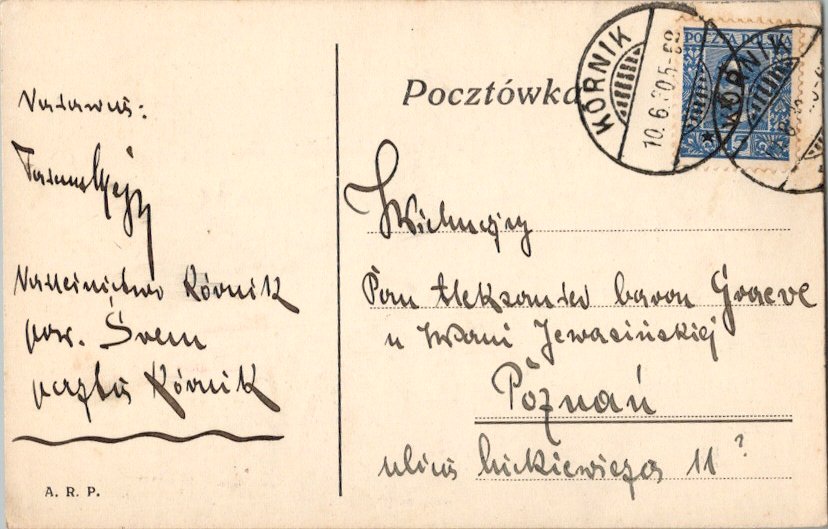 Nadawca:
Nadleśnictwo Kórnik
pow. Śrem
poczta Kórnik
A. R. P.
Pocztówka
KÓRNIK
10.6.30.5-
POCZTA POLSKA
15
KÓRNIK
Wielmożny
Pan Aleksander baron Graeve
u Wani
Poznań
ulica Mickiewicza 11?